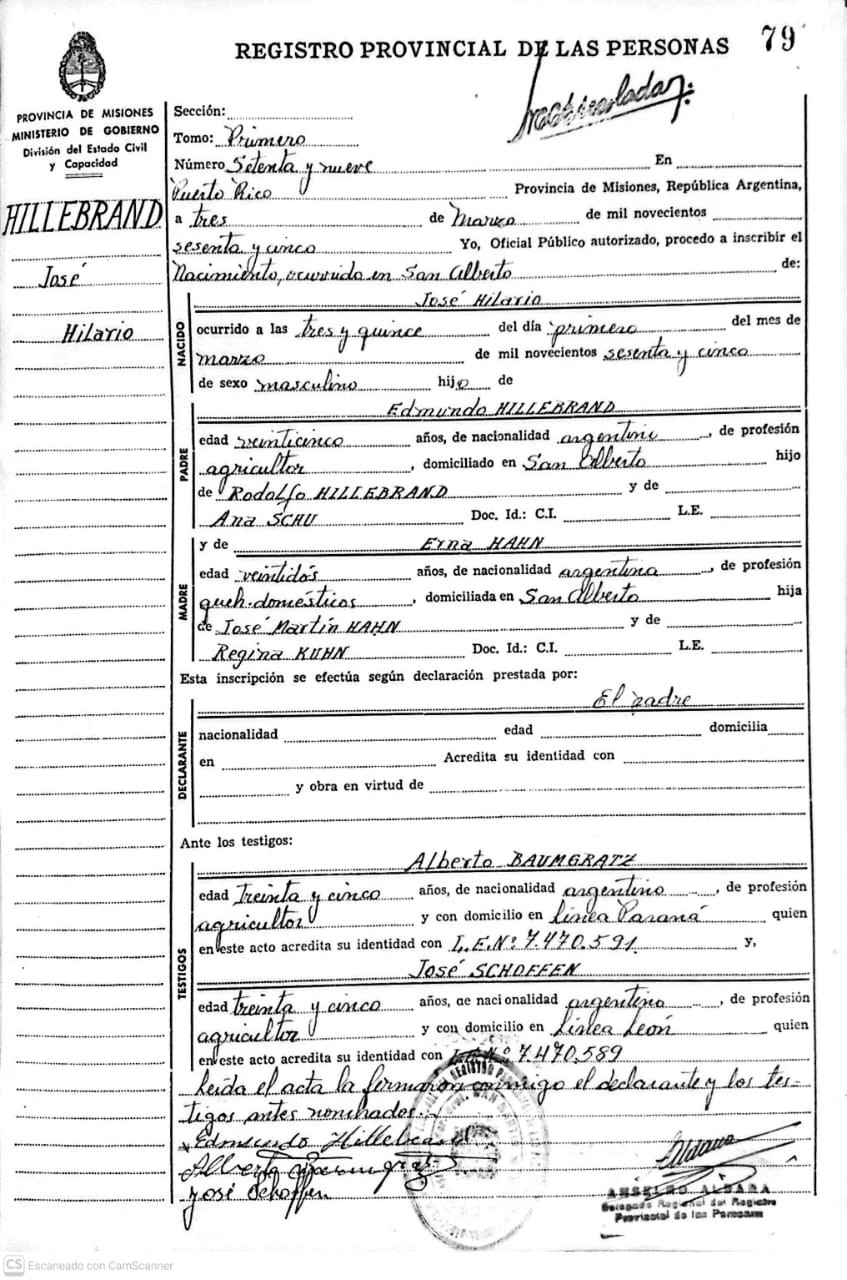 79
REGISTRO PROVINCIAL DE LAS PERSONAS
PROVINCIA DE MISIONES
MINISTERIO DE GOBIERNO
División del Estado Civil
y Capacidad
HILLEBRAND
José
Hilario
Sección:
Tomo: Primero
Número Setenta y nueve En
Puerto Rico Provincia de Misiones, República Argentina,
a tres de Marzo de mil novecientos
sesenta y cinco Yo, Oficial Público autorizado, procedo a inscribir el
Nacimiento, ocurrido en San Alberto de:
NACIDO
José Hilario
ocurrido a las tres y quince del día primero del mes de
marzo de mil novecientos sesenta y cinco
de sexo masculino hijo de
PADRE
Edmundo HILLEBRAND
edad veinticinco años, de nacionalidad argentina, de profesión
agricultor, domiciliado en San Alberto hijo
de Rodolfo HILLEBRAND y de
Ana SCHU Doc. Id.: C.I. L.E.
MADRE
y de Erna HAHN
edad veintidós años, de nacionalidad argentina, de profesión
queh. domésticos, domiciliada en San Alberto hija
de José Martín HAHN y de
Regina KUHN Doc. Id.: C.I. L.E.
Esta inscripción se efectúa según declaración prestada por:
DECLARANTE
El padre
nacionalidad edad domicilia
en Acredita su identidad con
y obra en virtud de
Ante los testigos:
TESTIGOS
Alberto BAUMGRATZ
edad treinta y cinco años, de nacionalidad argentino, de profesión
agricultor y con domicilio en Línea Paraná quien
en este acto acredita su identidad con L.E.Nº 7.470.591. y,
José SCHOFFEN
edad treinta y cinco años, de nacionalidad argentino, de profesión
agricultor y con domicilio en Línea León quien
en este acto acredita su identidad con L.E.Nº 7.470.589
Leída el acta la firmaron conmigo el declarante y los tes-
tigos antes nombrados.
Edmundo Hillebrand
Alberto Baumgratz
José Schoffen
ANSELMO ALDARA
Delegado Regional del Registro
Provincial de las Personas
CS Escaneado con CamScanner